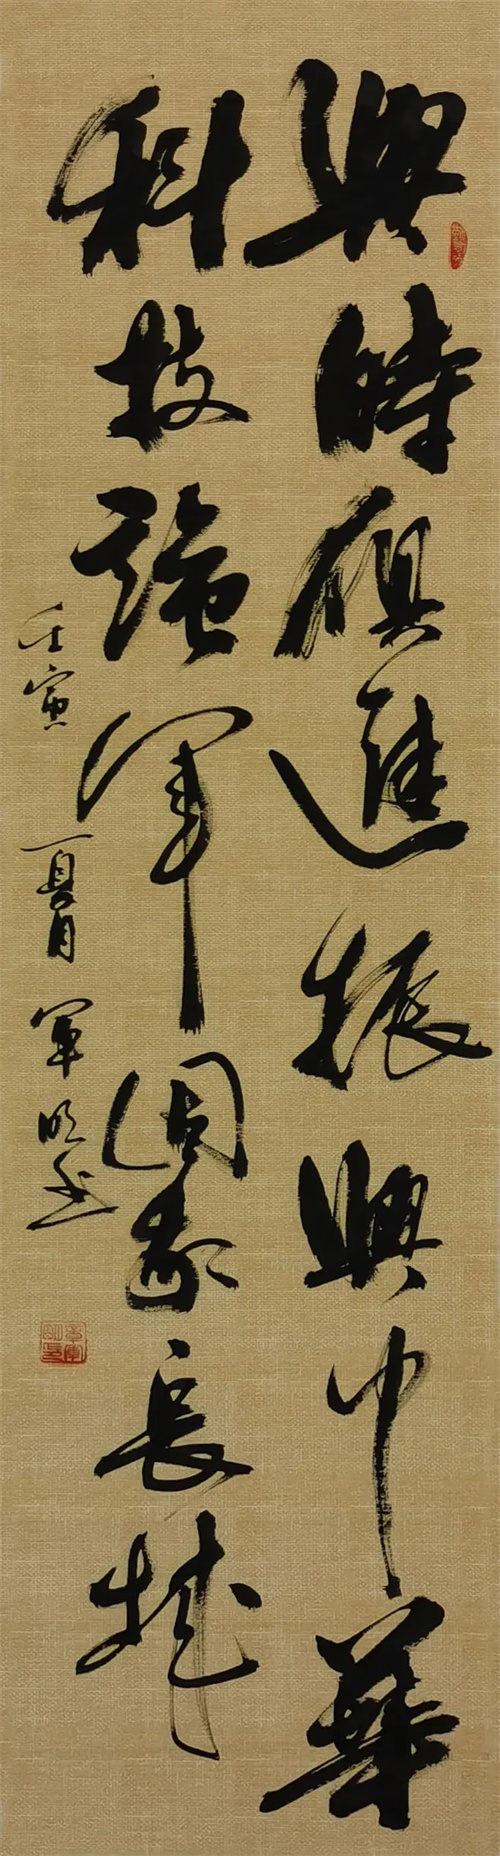 與時俱進振興中華
科技強軍國家長城
壬寅夏月軍明書